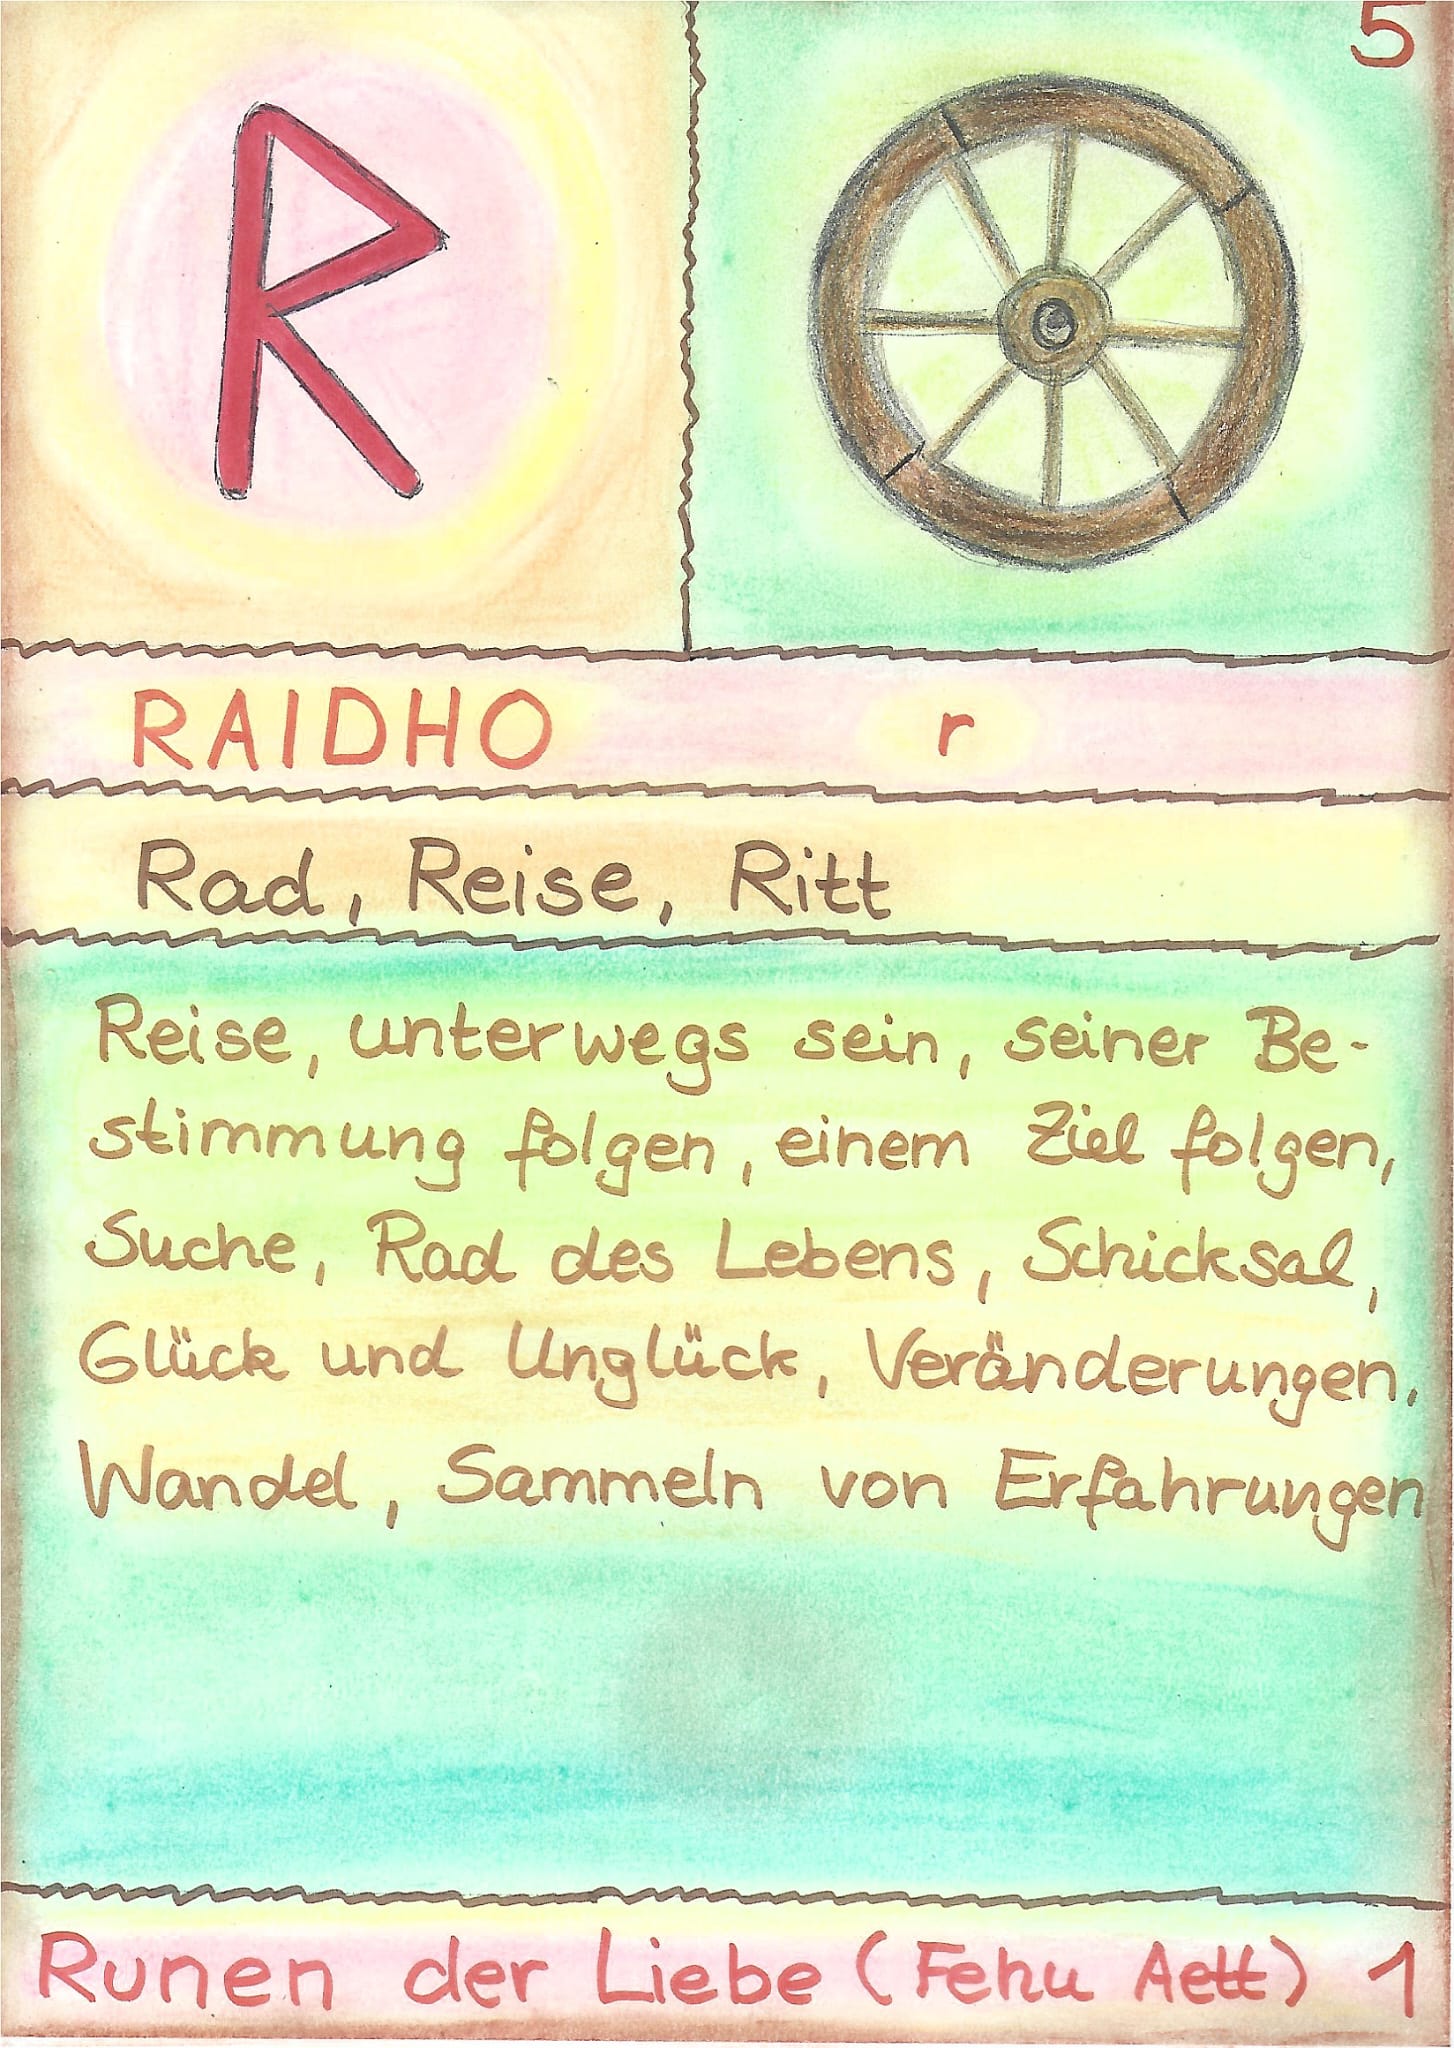 5
RAIDHO r
Rad, Reise, Ritt
Reise, unterwegs sein, seiner Be-
stimmung folgen, einem Ziel folgen,
Suche, Rad des Lebens, Schicksal,
Glück und Unglück, Veränderungen,
Wandel, Sammeln von Erfahrungen
Runen der Liebe (Fehu Aett) 1